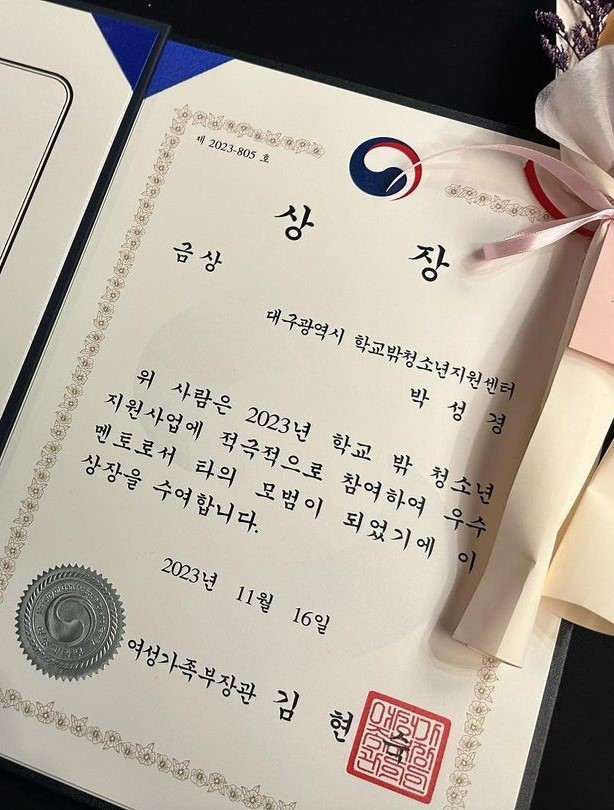 제 2023-805 호
상 장
금상
대구광역시 학교밖청소년지원센터
박 성 경
위 사람은 2023년 학교 밖 청소년
지원사업에 적극적으로 참여하여 우수
멘토로서 타의 모범이 되었기에 이
상장을 수여합니다.
2023년 11월 16일
여성가족부장관 김 현 숙